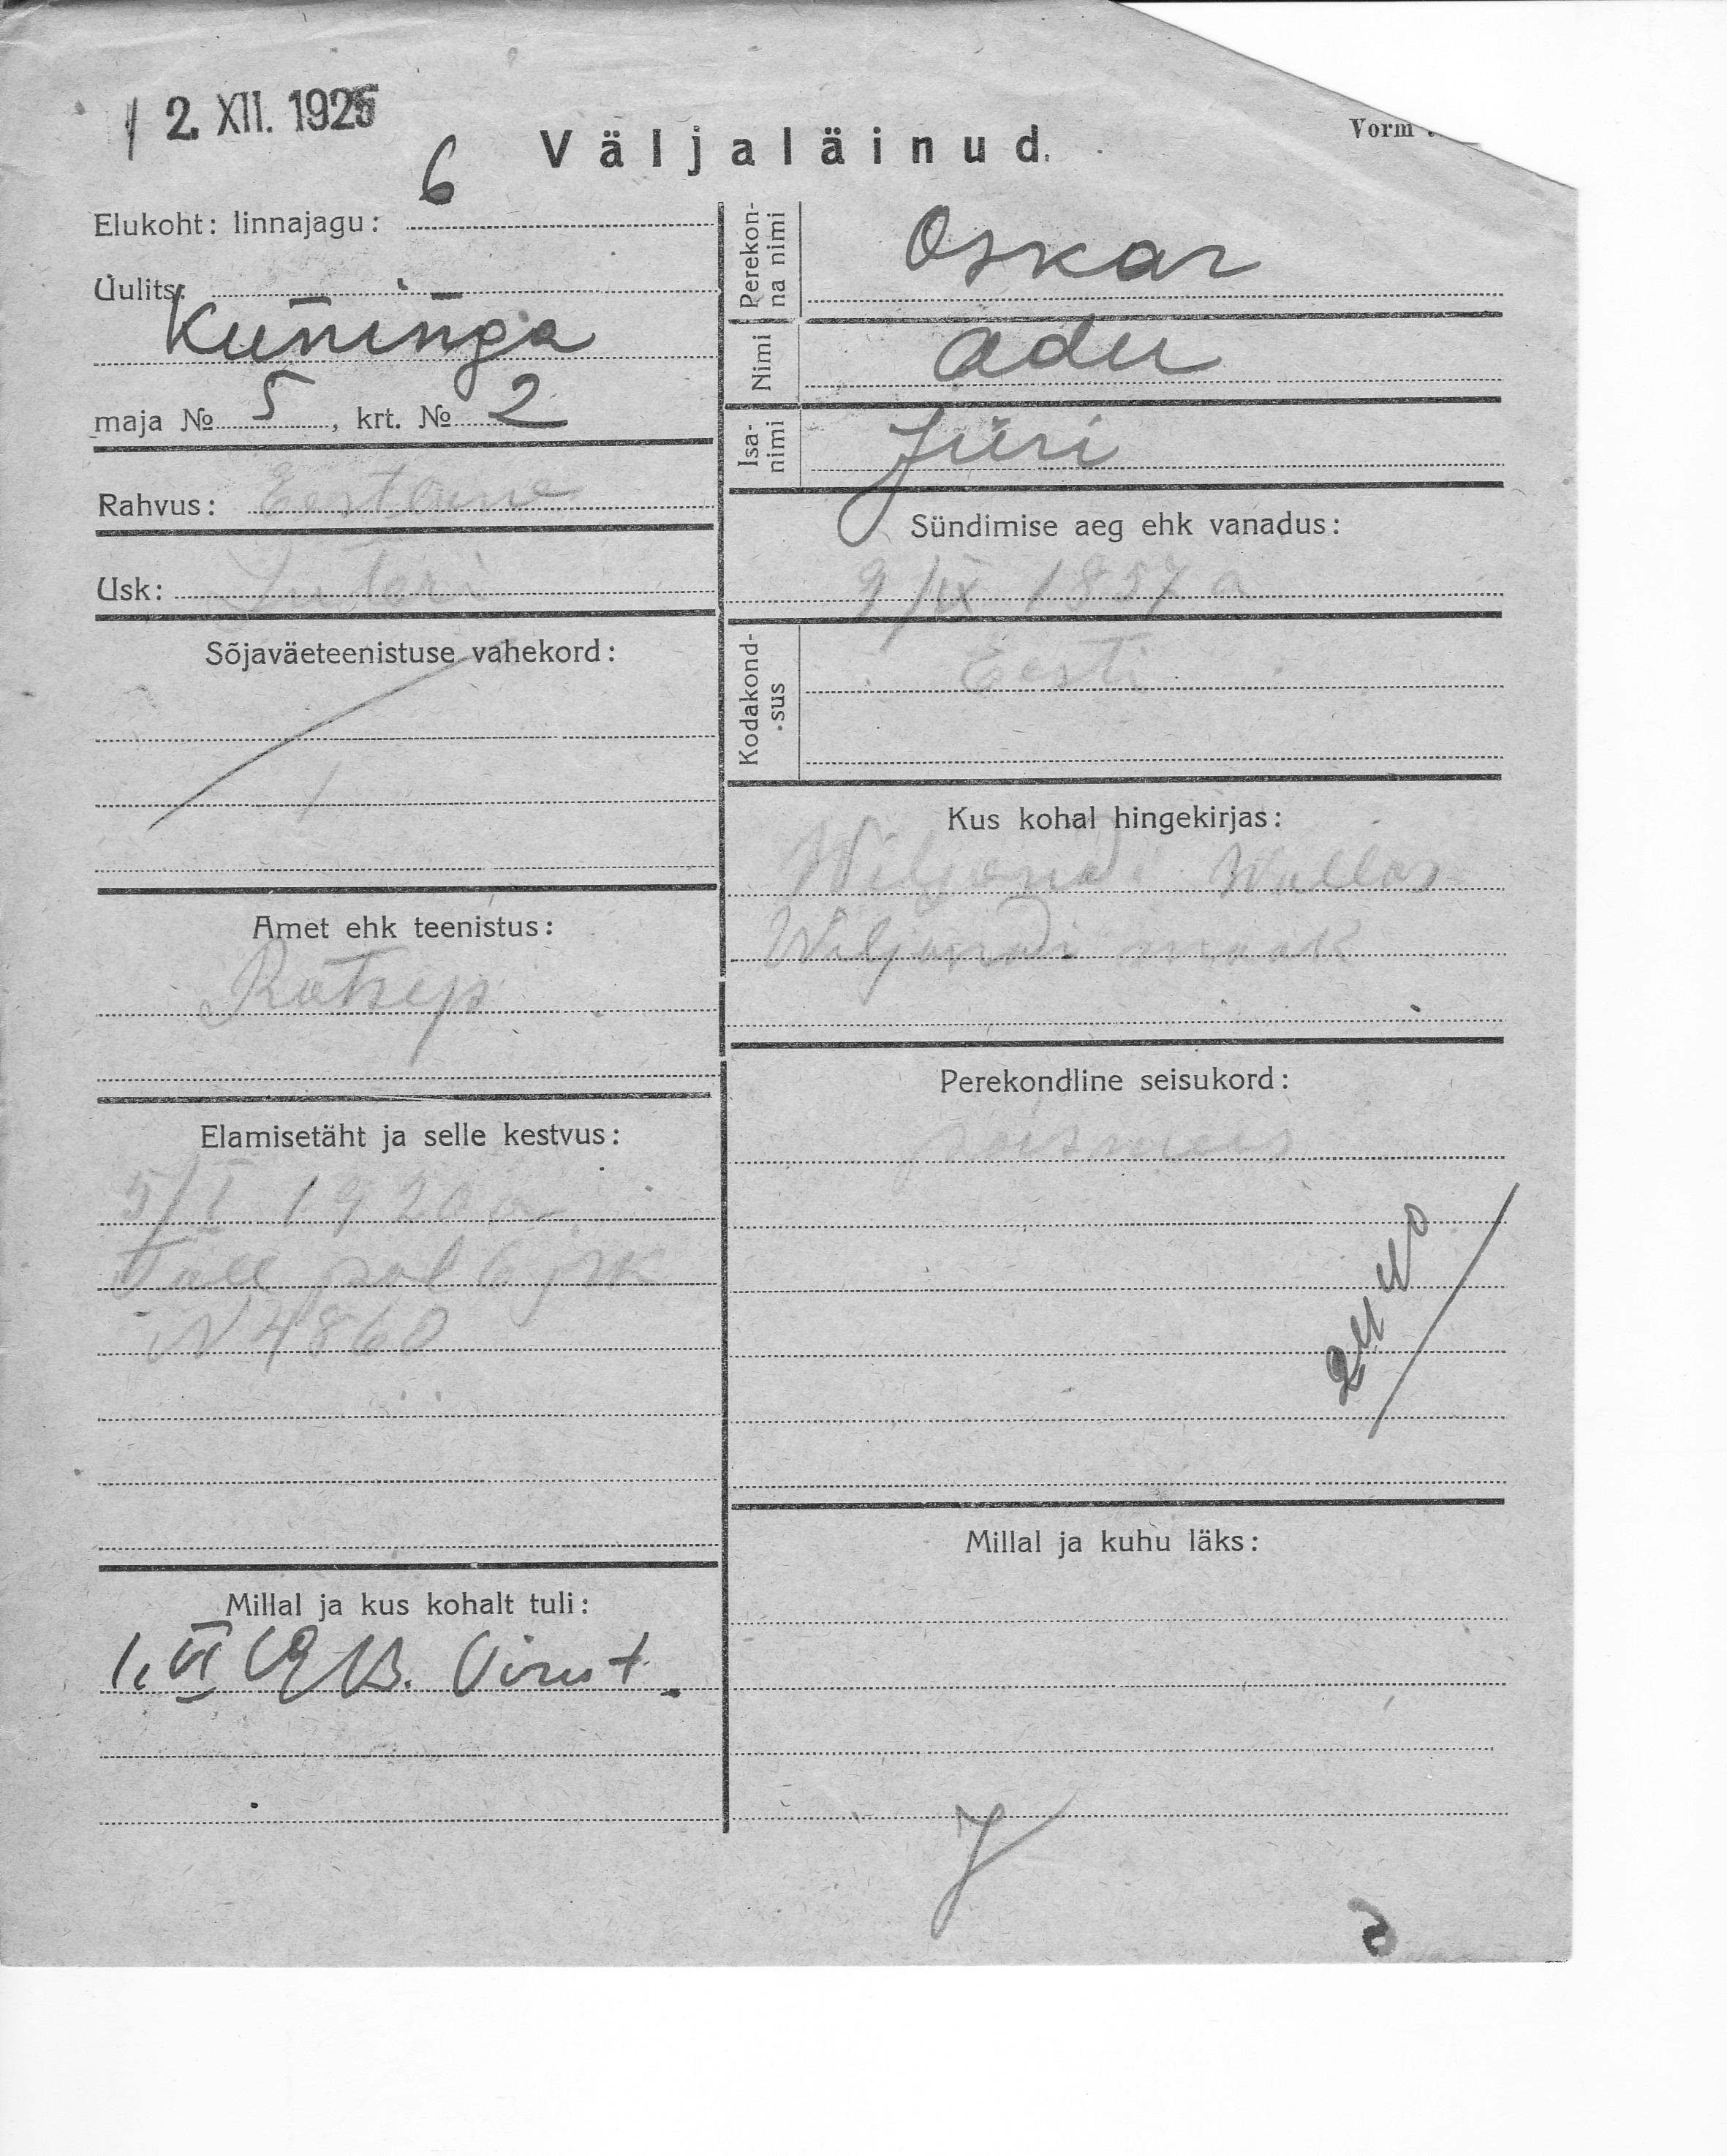 12. XII. 1925
Väljaläinud.
Vorm
Elukoht: linnajagu: 6
Uulits:
Kuninga
maja № 5, krt. № 2
Rahvus: Eestlane
Usk: Luteri
Sõjaväeteenistuse vahekord:
Amet ehk teenistus:
Rätsep
Elamisetäht ja selle kestvus:
5/I 1920 a
Tall pol 6 jsk
N 4860
Millal ja kus kohalt tuli:
1. VI Virust.
Perekon-
na nimi
Oskar
Nimi
Adu
Isa-
nimi
Jüri
Sündimise aeg ehk vanadus:
9/IX 1857 a
Kodakond-
sus
Eesti
Kus kohal hingekirjas:
Wiljandi Wallas
Wiljandi maak
Perekondline seisukord:
poismees
Millal ja kuhu läks: